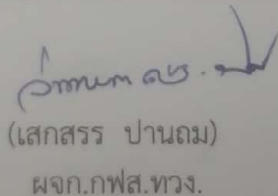 (เสกสรร ปานถม)
ผจก.กฟส.ทวง.